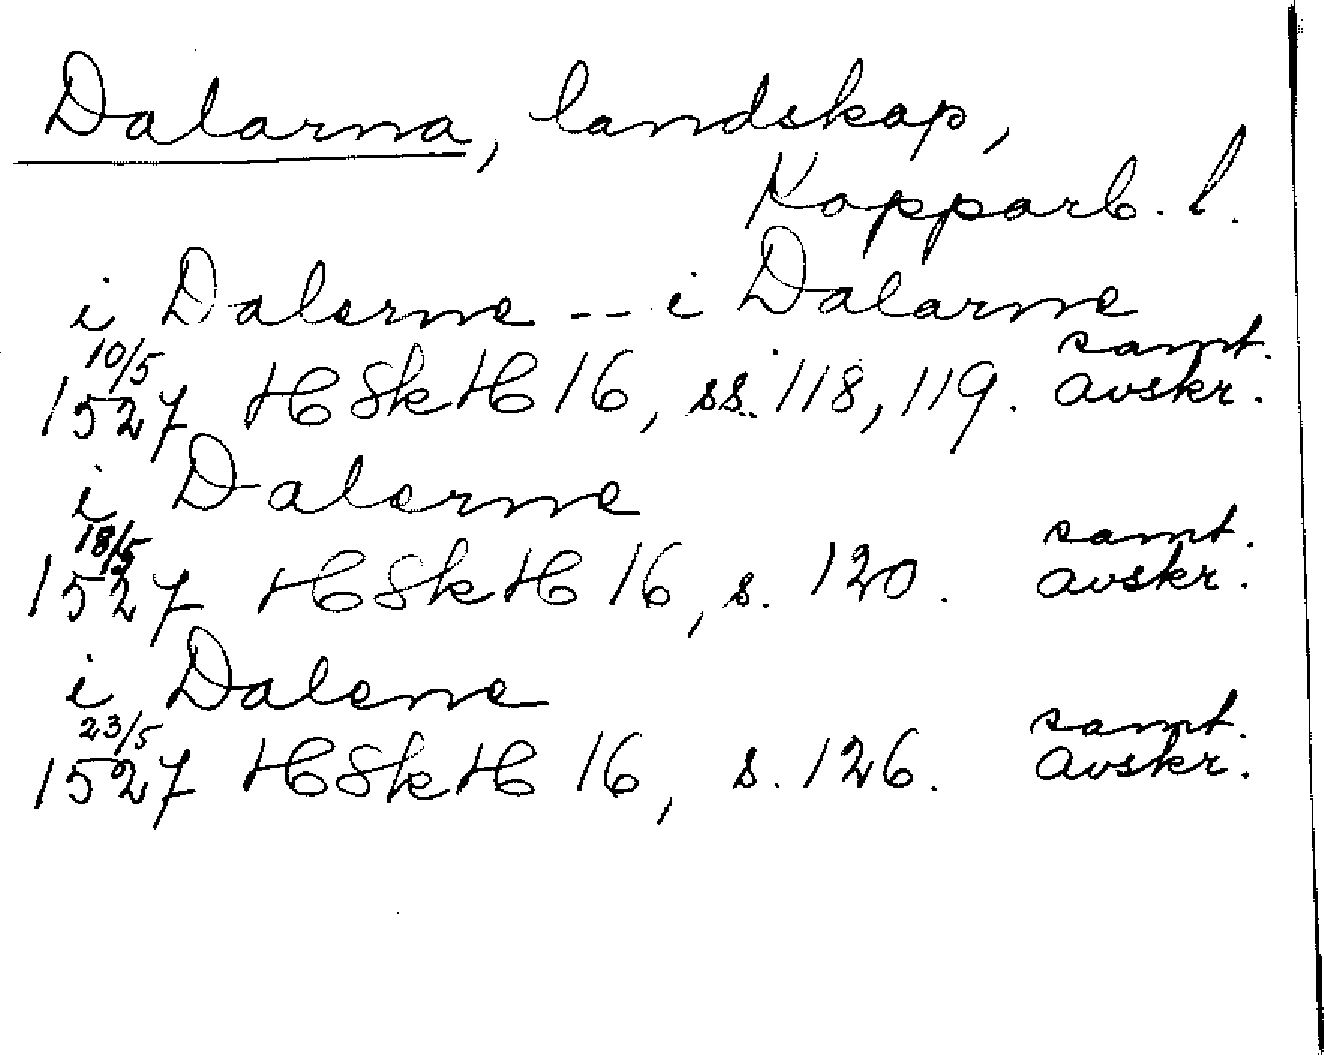 Dalarna, landskap,
Kopparb. l.
i Dalerne -- i Dalarne
10/5 samt.
1527 HSkH 16, ss. 118, 119. avskr.
i Dalerne
18/5 samt.
1527 HSkH 16, s. 120. avskr.
i Dalene
23/5 samt.
1527 HSkH 16, s. 126. avskr.